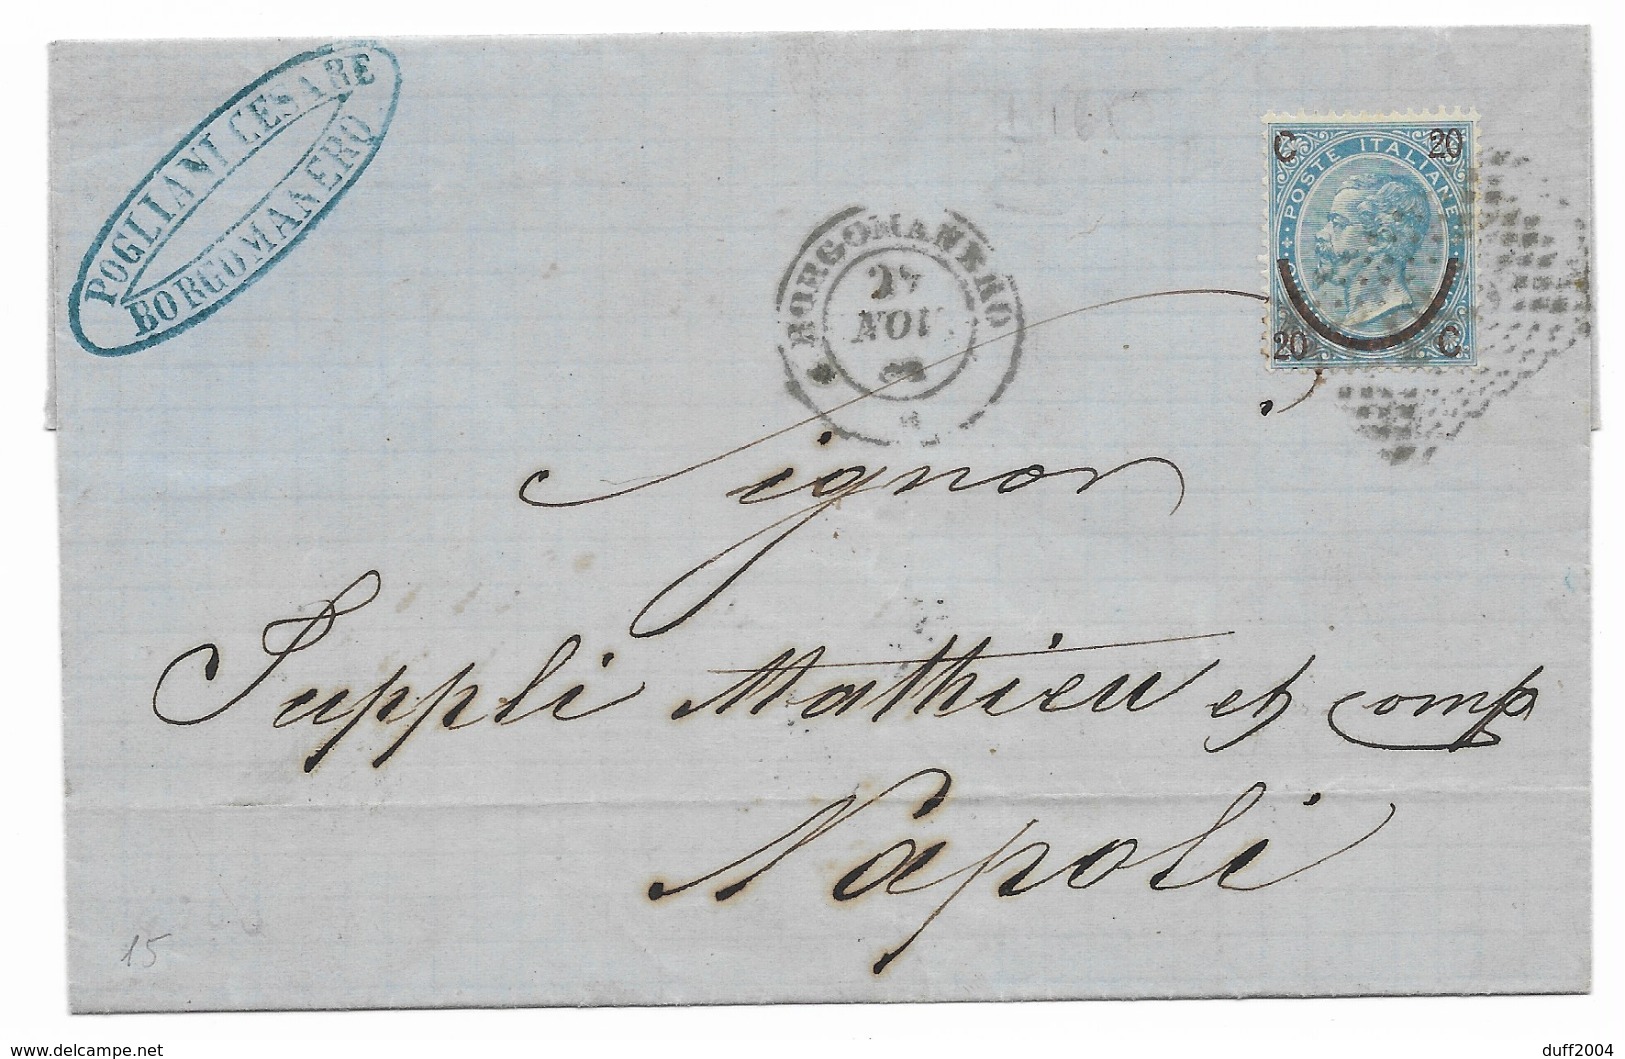 POGLIANI CESARE
BORGOMANERO
BORGOMANERO
27
NOV
C 20
POSTE ITALIANE
20 C
Signor
Suppli Mathieu et comp
Napoli
15
www.delcampe.net
duff2004